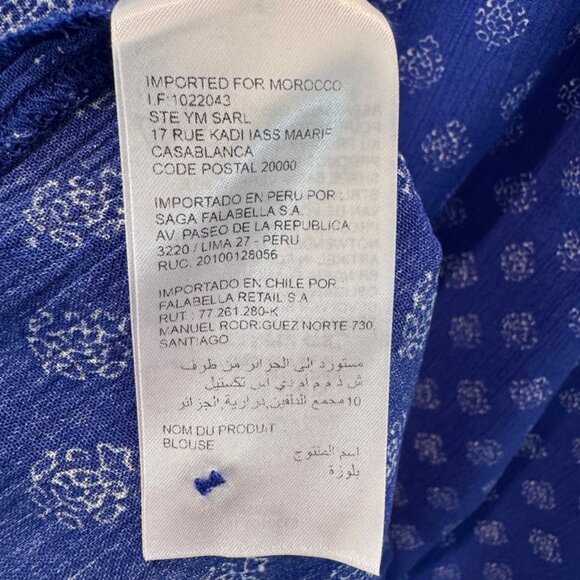 IMPORTED FOR MOROCCO
I.F:1022043
STE YM SARL
17 RUE KADI IASS MAARIF
CASABLANCA
CODE POSTAL 20000
IMPORTADO EN PERU POR :
SAGA FALABELLA S.A.
AV. PASEO DE LA REPUBLICA
3220 / LIMA 27 - PERU
RUC. 20100128056
IMPORTADO EN CHILE POR :
FALABELLA RETAIL S.A
RUT : 77.261.280-K
MANUEL RODRIGUEZ NORTE 730,
SANTIAGO
مستورد الى الجزائر من طرف
ش ذ م م ام دي اس تكستيل
10 مجمع الدلفين,درارية,الجزائر
NOM DU PRODUIT
BLOUSE
اسم المنتوج
بلوزة